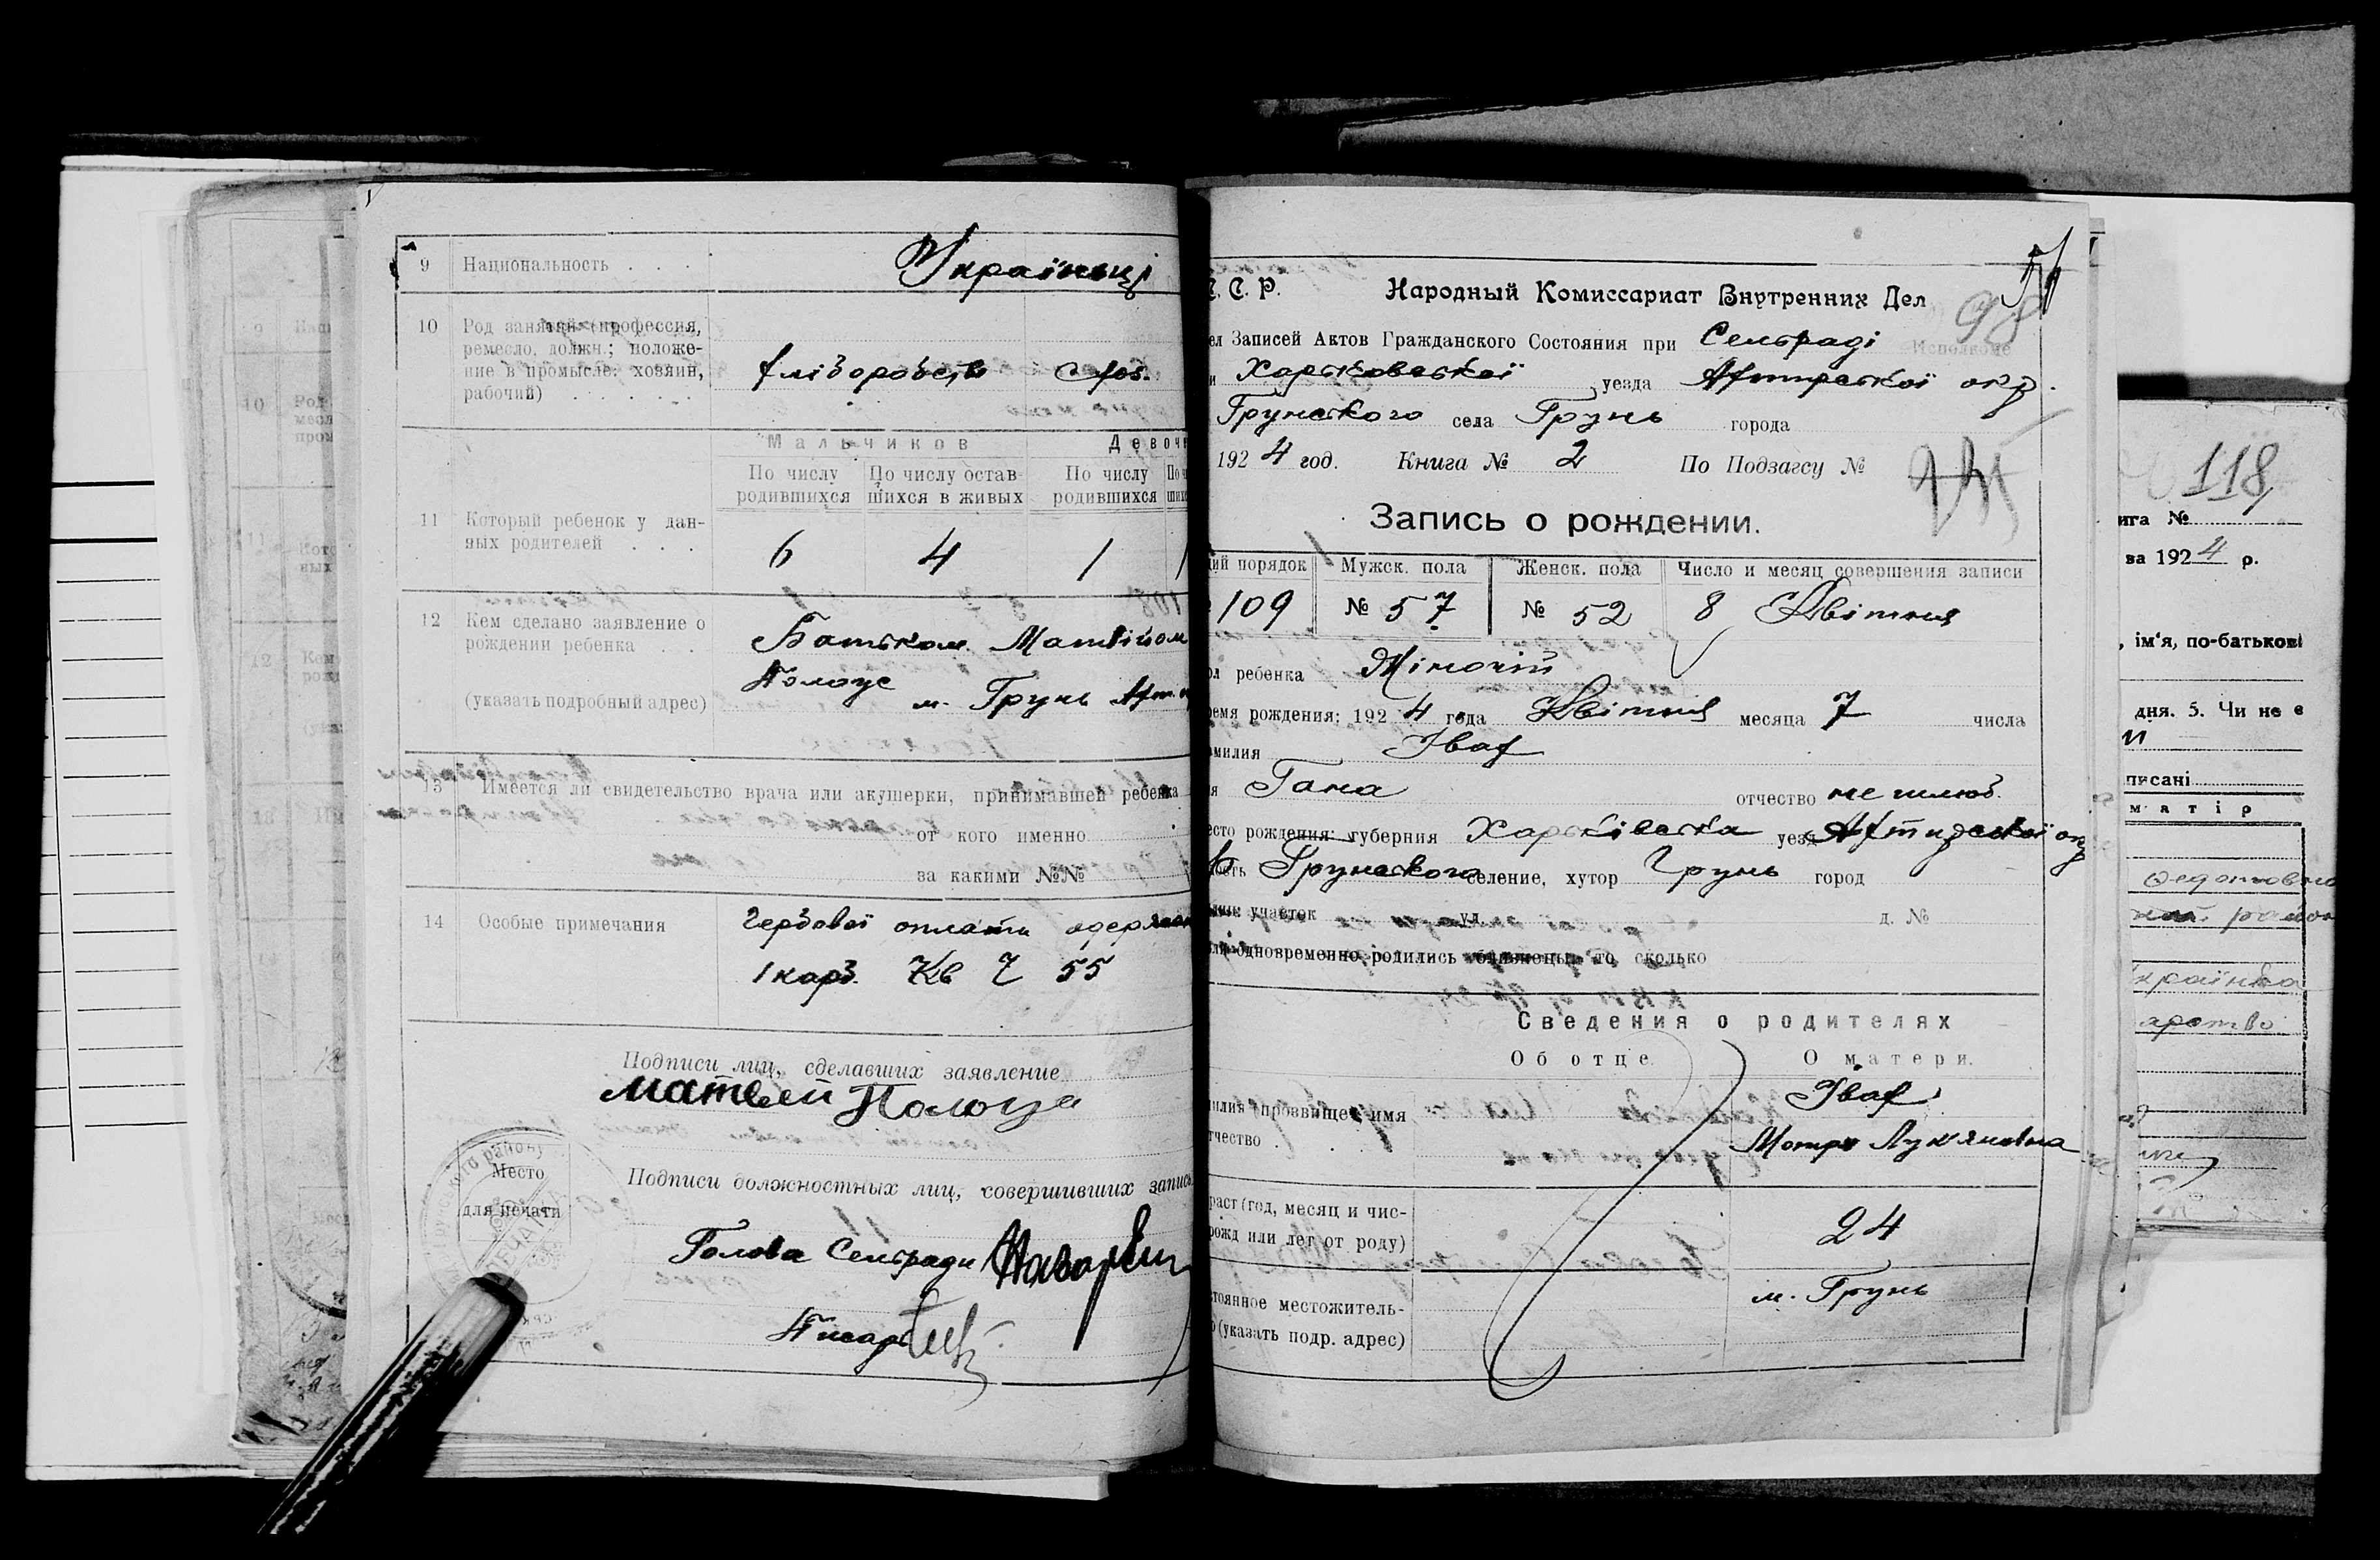 9 Национальность . . . Українці
10 Род занятий (профессия,
ремесло, должн.; положе-
ние в промысле: хозяин,
рабочий) . . . . . .
хліборобств
Мальчиков Девоч
По числу родившихся По числу остав- шихся в живых По числу родившихся
11 Который ребенок у дан-
ных родителей . . . 6 4 1 1
12 Кем сделано заявление о
рождении ребенка . . Батьком Матвійом
(указать подробный адрес) м. Грунь
13 Имеется ли свидетельство врача или акушерки, принимавшей ребенка
от кого именно
за какими №№
14 Особые примечания Гербової оплати
1 карб. Кв Ч 55
Подписи лиц, сделавших заявление
Матвей
Место
для печати
Подписи должностных лиц, совершивших запись
Голова Сельради
Писарь
51
98
С. Р. Народный Комиссариат Внутренних Дел
Записей Актов Гражданского Состояния при Сельраді Исполкоме
Харьковської уезда Ахтирської окр.
Грунського села Грунь города
1924 год. Книга № 2 По Подзагсу №
Запись о рождении.
порядок Мужск. пола Женск. пола Число и месяц совершения записи
109 № 57 № 52 8 Квітня
ребенка Жіночій
рождения: 1924 года Квітня месяца 7 числа
Івах
Гана отчество не шлюб.
рождения: губерния Харківська уезд Ахтирської окр
Грунського селение, хутор Грунь город
участок ул. д. №
одновременно родились близнецы, то сколько
Сведения о родителях
Об отце. О матери.
прозвище, имя Івах
Мотря Лук'яновна
(год, месяц и чис-
или лет от роду) 24
местожитель-
(указать подр. адрес) м. Грунь
118
№
192 4 р.
ім'я, по-батькові
дня. 5. Чи не є
матір